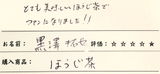 とても美味しいほうじ茶で
ファンになりました!!
お名前： 黒澤 拓也 評価：☆☆☆☆★
購入商品： ほうじ茶